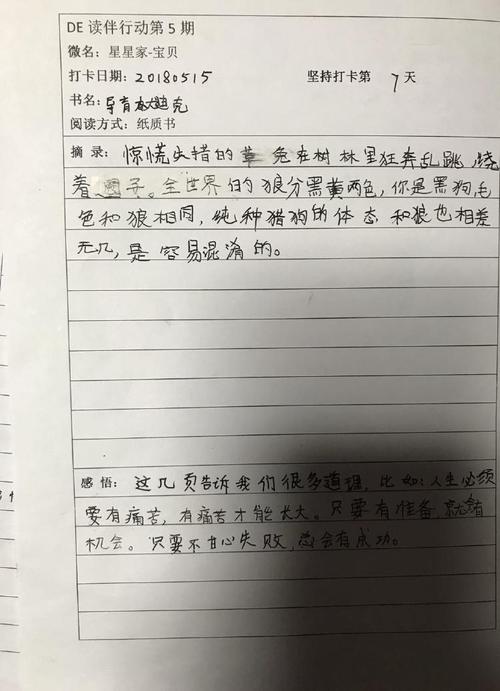 DE 读伴行动第 5 期
微名：星星家-宝贝
打卡日期：20180515 坚持打卡第 7 天
书名：导盲犬迪克
阅读方式：纸质书
摘 录：惊慌失措的草兔在树林里狂奔乱跳，绕
着圈子。全世界的狼分黑黄两色，你是黑狗，毛
色和狼相同，纯种猎狗的体态和狼也相差
无几，是容易混淆的。
感 悟：这几页告诉我们很多道理，比如：人生必须
要有痛苦，有痛苦才能长大。只要有准备，就会有
机会。只要不甘心失败，总会有成功。